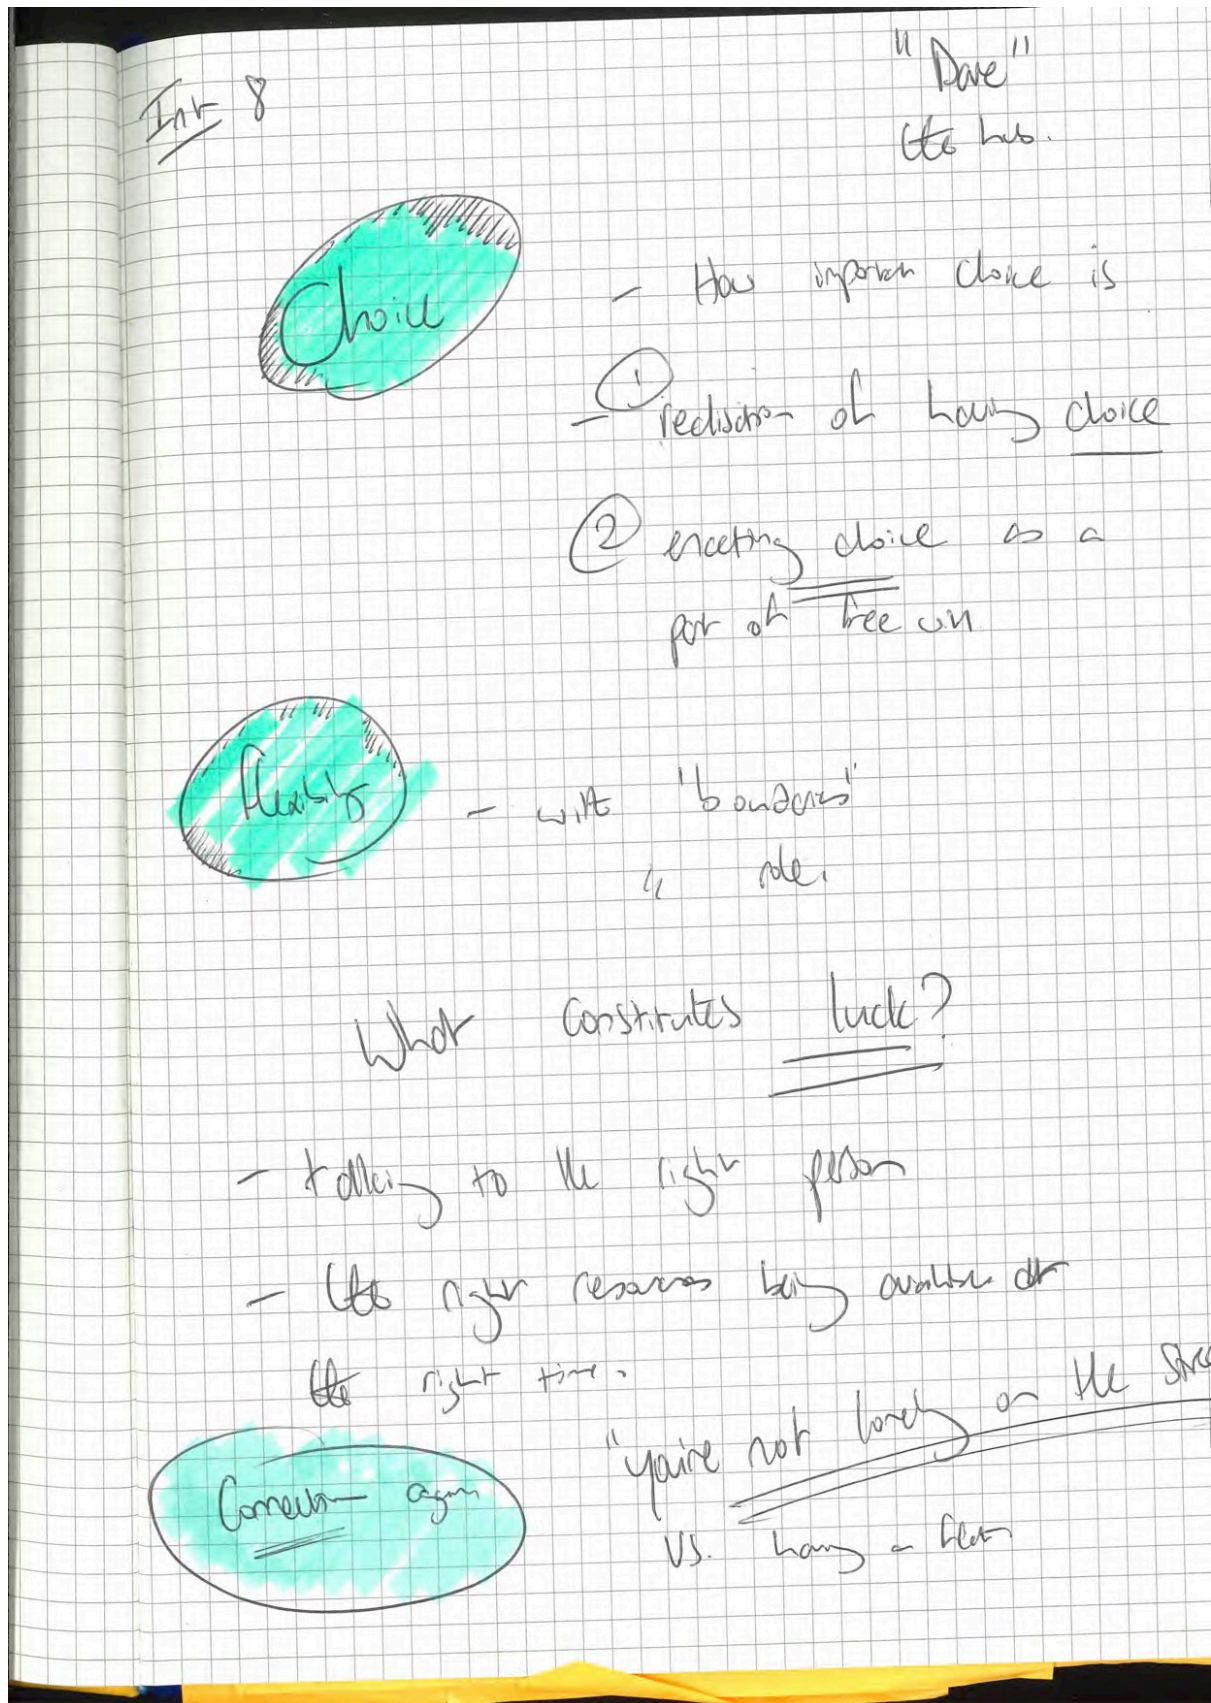 Int 8
"Dave"
the hub.
Choice
- How important choice is
- ① realisation of having choice
② enacting choice as a
part of free will
flexibility
- with "boundaries"
" role.
What constitutes luck?
- talking to the right person
- the right resources being available at
the right time.
Connection again
"you're not lonely on the
vs. having a flat